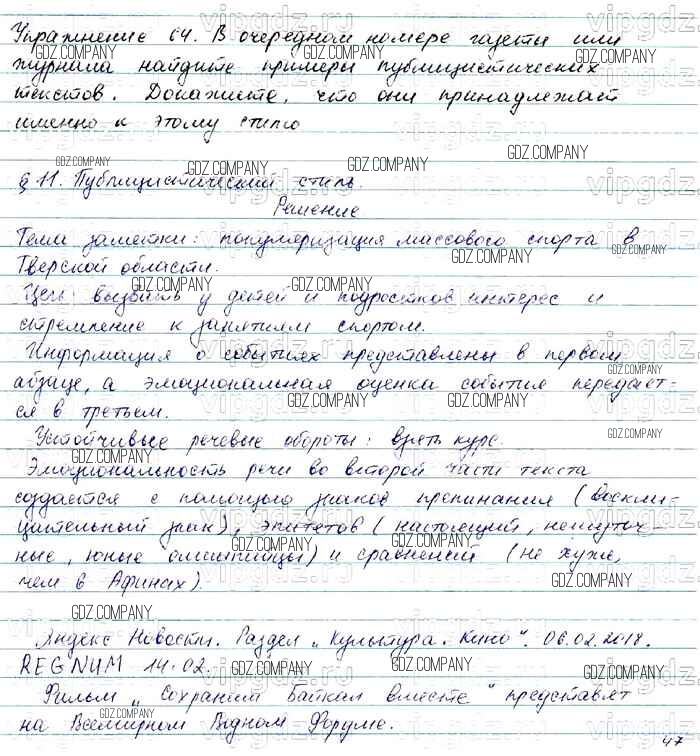 Упражнение 64. В очередном номере газеты или
журнала найдите примеры публицистических
текстов. Докажите, что они принадлежат
именно к этому стилю
§ 11. Публицистический стиль.
Решение
Тема заметки: популяризация массового спорта в
Тверской области.
Цель: вызвать у детей и подростков интерес и
стремление к занятиям спортом.
Информация о событиях представлены в первом
абзаце, а эмоциональная оценка события передает-
ся в третьем.
Устойчивые речевые обороты: взять курс.
Эмоциональность речи во второй части текста
создается с помощью знаков препинания (воскли-
цательный знак), эпитетов (настоящий, нешуточ-
ные, юные олимпийцы) и сравнений (не хуже,
чем в Афинах).
Яндекс Новости. Раздел „Культура. Кино". 06.02.2018.
REGNUM 14.02.
Фильм „Сохраним Байкал вместе" представят
на Всемирном Водном Форуме.
47
GDZ.COMPANY
vipgdz.ru